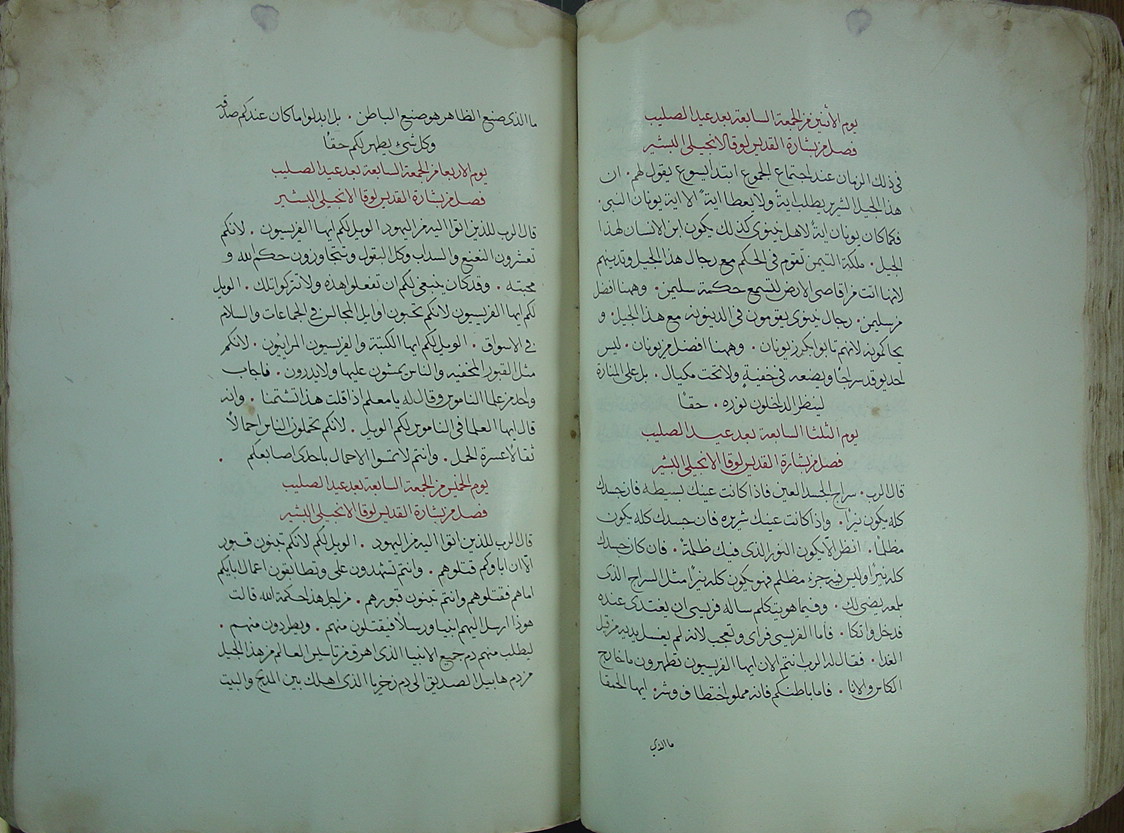 يوم الأثنين من الجمعة السابعة بعد عيد الصليب
فصل من بشارة القديس لوقا الانجيلي البشير
في ذلك الزمان عند اجتماع الجموع ابتدا يسوع يقول لهم . ان
هذا الجيل الشرير يطلب اية ولا يعطا اية الا اية يونان النبي .
فكما كان يونان اية لاهل نينوي كذلك يكون ابن الانسان لهذا
الجيل . ملكة التيمن تقوم في الحكم مع رجال هذا الجيل وتدينهم
لانها اتت من اقاصي الارض لتسمع حكمة سليمن . وههنا افضل
من سليمن . رجال نينوي يقومون في الدينونة مع هذا الجيل . و
يحاكمونه لانهم تابوا بكرز يونان . وههنا افضل من يونان . ليس
احد يوقد سراجا ويضعه في خفية ولا تحت مكيال . بل على المنارة
لينظر الداخلون نوره . حقا
يوم الثلثا السابعة بعد عيد الصليب
فصل من بشارة القديس لوقا الانجيلي البشير
قال الرب . سراج الجسد العين فاذا كانت عينك بسيطه فان جسدك
كله يكون نيرا . واذا كانت عينك شريره فان جسدك كله يكون
مظلما . انظر الا يكون النور الذي فيك ظلمة . فان كان جسدك
كله نيرا وليس فيه جزء مظلم فهو يكون كله نيرا مثل السراج الذي
بلمعه يضي لك . وفيما هو يتكلم ساله فريسي ان يغتدي عنده
فدخل واتكا . فاما الفريسي فراي وتعجب لانه لم يغسل يديه من قبل
الغدا . فقال له الرب انتم الان ايها الفريسيون تطهرون ما خارج
الكاس والانا . فاما باطنكم فانه مملو اختطاف وشر . ايها الحمقا
ما الذي
ما الذي صنع الظاهر هو صنع الباطن . بل ابدلوا ما كان عندكم صدقه
وكل شيء يطهر لكم حقا
يوم الاربعا من الجمعة السابعة بعد عيد الصليب
فصل من بشارة القديس لوقا الانجيلي البشير
قال الرب للذين اتوا اليه من اليهود . الويل لكم ايها الفريسيون . لانكم
تعشرون النعنع والسداب وكل البقول وتتجاوزون حكم الله و
محبته . وقد كان ينبغي لكم ان تفعلوا هذه ولا تتركوا تلك . الويل
لكم ايها الفريسيون لانكم تحبون اوايل المجالس في الجماعات والسلام
في الاسواق . الويل لكم ايها الكتبة والفريسيون المرايون . لانكم
مثل القبور المخفيه والناس يمشون عليها ولا يدرون . فاجاب
واحد من علما الناموس وقال له يا معلم اذ قلت هذا تشتمنا . وانه
قال ايها العلما في الناموس لكم الويل . لانكم تحملون الناس احمالا
ثقالا عسرة الحمل . وانتم لا تمسوا الاحمال باحدي اصابعكم .
يوم الخميس من الجمعة السابعة بعد عيد الصليب
فصل من بشارة القديس لوقا الانجيلي البشير
قال الرب للذين اتوا اليه من اليهود . الويل لكم لانكم تبنون قبور
الا ان اباوكم قتلوهم . وانتم تشهدون على وتطابقون اعمال بايكم
اما هم فقتلوهم وانتم تبنون قبورهم . من اجل هذا حكمة الله قالت
هوذا ارسل اليهم انبيا ورسلا فيقتلون منهم . ويطردون منهم .
ليطلب منهم دم جميع الانبيا الذي اهرق من تاسيس العالم من هذا الجيل
من دم هابيل الصديق الى دم زخريا الذي اهلك بين المذبح والبيت